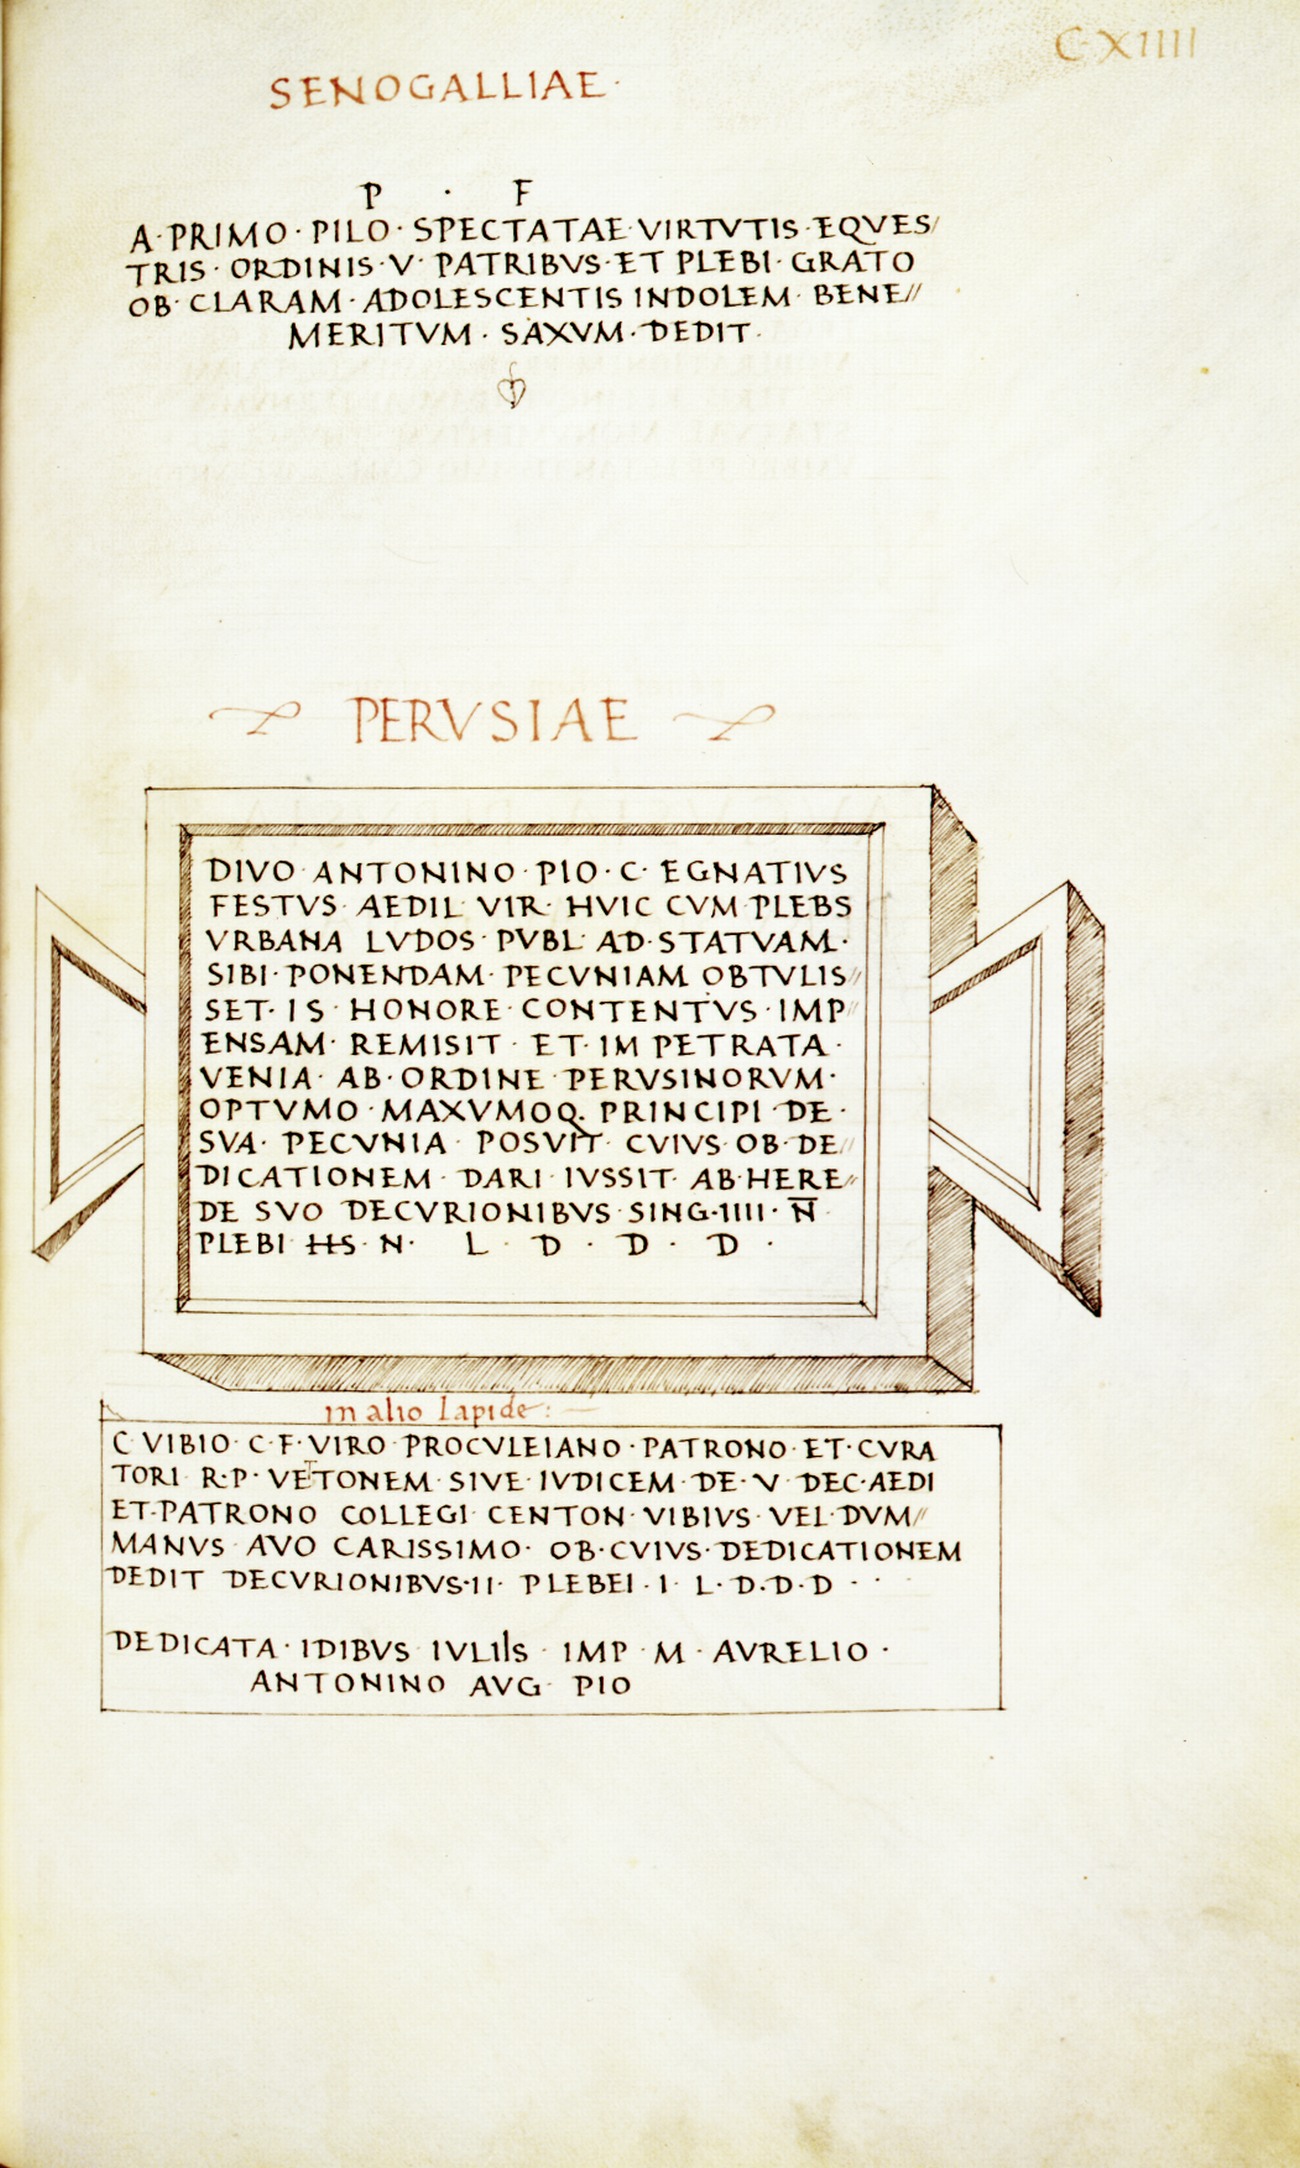 CXIIII
SENOGALLIAE·
P · F
A·PRIMO·PILO·SPECTATAE·VIRTVTIS·EQVES/
TRIS·ORDINIS·V·PATRIBVS·ET PLEBI·GRATO
OB·CLARAM·ADOLESCENTIS INDOLEM·BENE//
MERITVM·SAXVM·DEDIT·
PERVSIAE
DIVO·ANTONINO·PIO·C·EGNATIVS
FESTVS·AEDIL·VIR·HVIC CVM·PLEBS
VRBANA LVDOS·PVBL·AD·STATVAM·
SIBI·PONENDAM·PECVNIAM OBTVLIS//
SET·IS·HONORE·CONTENTVS·IMP//
ENSAM·REMISIT·ET·IM PETRATA·
VENIA·AB·ORDINE·PERVSINORVM·
OPTVMO·MAXVMOQ. PRINCIPI·DE·
SVA·PECVNIA·POSVIT·CVIVS·OB·DE//
DICATIONEM·DARI·IVSSIT·AB·HERE//
DE SVO DECVRIONIBVS·SING·IIII·N̅
PLEBI HS·N· L · D · D · D ·
in alio lapide:
C·VIBIO·C·F·VIRO·PROCVLEIANO·PATRONO·ET·CVRA
TORI R·P·VETTONEM·SIVE·IVDICEM·DE·V·DEC·AEDI
ET·PATRONO COLLEGI·CENTON·VIBIVS·VEL·DVM//
MANVS·AVO CARISSIMO·OB·CVIVS·DEDICATIONEM
DEDIT DECVRIONIBVS·II·PLEBEI·I·L·D·D·D · ·
DEDICATA·IDIBVS IVLIIS·IMP·M·AVRELIO·
ANTONINO AVG·PIO